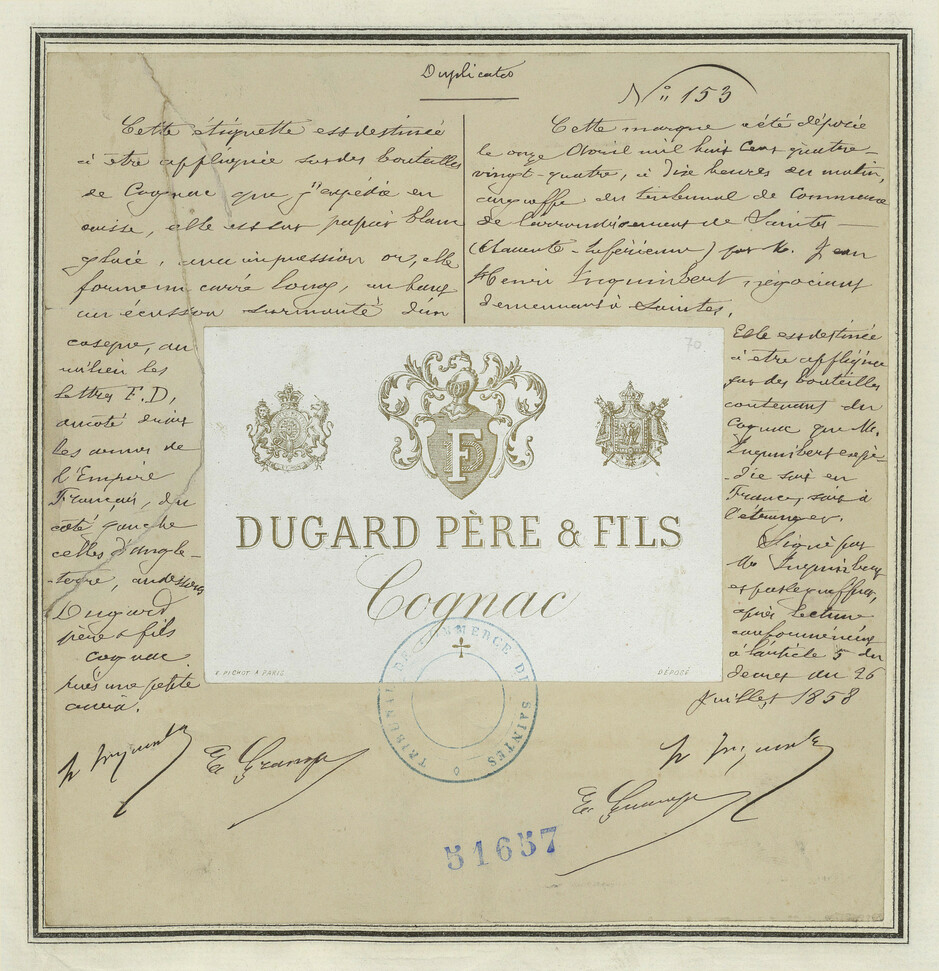 Duplicata
Nº 153
Cette étiquette est destinée
à être appliquée sur des bouteilles
de Cognac que j'expédie en
suisse, elle est sur papier blanc
glacé, une impression or, elle
forme un carré long, en haut
un écusson surmonté d'un
casque, au
milieu les
lettres F. D,
à côté droit
les armes de
l'Empire
Français, du
côté gauche
celles d'angle-
-terre, au dessous
Dugard
père & fils
cognac
puis une petite
croix.
Cette marque a été déposée
le onze Avril mil huit cent quatre-
vingt-quatre, à dix heures du matin,
au greffe du tribunal de Commerce
de l'arrondissement de Saintes
(Charente Inférieure) par M. Jean
Henri Inquimbert, négociant
demeurant à Saintes.
Elle est destinée
à être appliquée
sur des bouteilles
contenant du
Cognac que M.
Inquimbert expé-
-die soit en
France, soit à
l'étranger.
Signé par
M. Inquimbert
et par le greffier,
après lecture
conformément
à l'article 5 du
décret du 26
Juillet 1858
70
FD
DUGARD PÈRE & FILS
Cognac
E. PICHOT A PARIS
DÉPOSÉ
TRIBUNAL DE COMMERCE DE SAINTES
51657